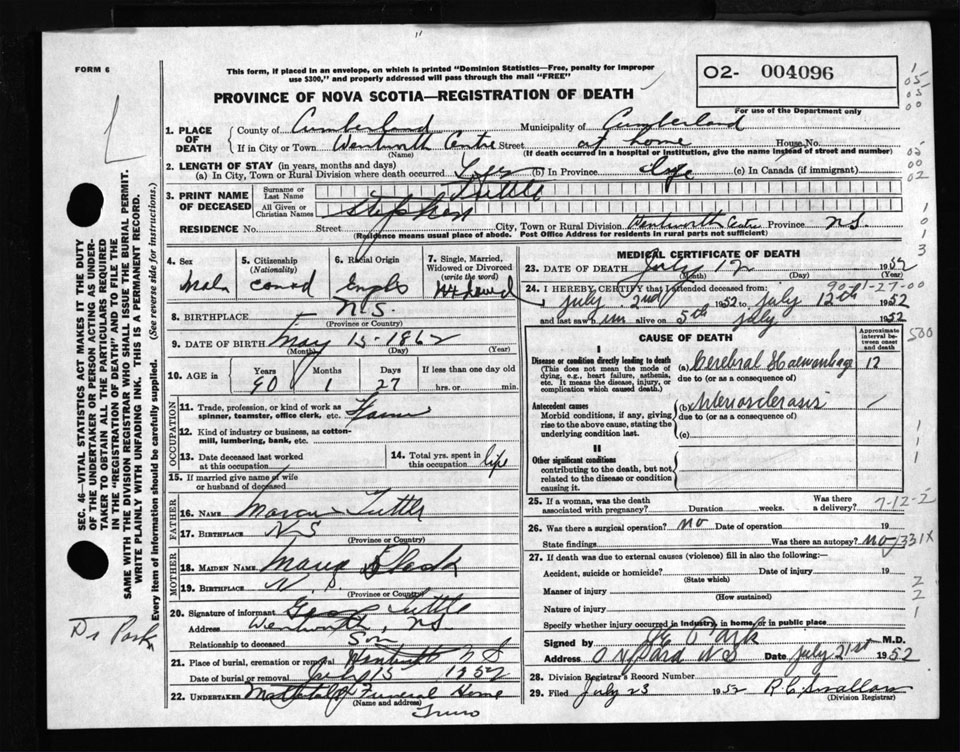 FORM 6
This form, if placed in an envelope, on which is printed "Dominion Statistics—Free, penalty for improper
use $300," and properly addressed will pass through the mail "FREE"
O2- 004096
For use of the Department only
PROVINCE OF NOVA SCOTIA—REGISTRATION OF DEATH
1. PLACE OF DEATH
County of Cumberland Municipality of Cumberland
If in City or Town Wentworth Centre Street at home House No.
(Name) (If death occurred in a hospital or institution, give the name instead of street and number)
2. LENGTH OF STAY (in years, months and days)
(a) In City, Town or Rural Division where death occurred (b) In Province life (c) In Canada (if immigrant)
3. PRINT NAME OF DECEASED
Surname or Last Name Tuttle
All Given or Christian Names Stephen
RESIDENCE No. Street City, Town or Rural Division Wentworth Centre Province N.S.
(Residence means usual place of abode. Post Office Address for residents in rural parts not sufficient)
4. Sex Male
5. Citizenship (Nationality)
6. Racial Origin
7. Single, Married, Widowed or Divorced (write the word) Widowed
8. BIRTHPLACE N.S.
(Province or Country)
9. DATE OF BIRTH May 15-1862
(Month) (Day) (Year)
10. AGE in Years Months Days If less than one day old
90 1 27 hrs. or min.
OCCUPATION
11. Trade, profession, or kind of work as
spinner, teamster, office clerk, etc.
12. Kind of industry or business, as cotton-
mill, lumbering, bank, etc.
13. Date deceased last worked
at this occupation
14. Total yrs. spent in
this occupation life
15. If married give name of wife
or husband of deceased
FATHER
16. NAME Tuttle
17. BIRTHPLACE N S
(Province or Country)
MOTHER
18. MAIDEN NAME Black
19. BIRTHPLACE N. S
(Province or Country)
20. Signature of informant Tuttle
Address Wentworth, N.S.
Relationship to deceased Son
21. Place of burial, cremation or removal Wentworth N S
Date of burial or removal July 15 1952
22. UNDERTAKER Funeral Home
(Name and address)
Truro
MEDICAL CERTIFICATE OF DEATH
23. DATE OF DEATH July 12 1952
(Month) (Day) (Year)
24. I HEREBY CERTIFY that I attended deceased from:
July 2nd 1952 to July 12th 1952
and last saw him alive on 5th July 1952
CAUSE OF DEATH
Approximate interval between onset and death
I
Disease or condition directly leading to death
(This does not mean the mode of dying, e.g., heart failure, asthenia, etc. It means the disease, injury, or complication which caused death.)
(a) Cerebral Haemorrhage 12
due to (or as a consequence of)
Antecedent causes
Morbid conditions, if any, giving rise to the above cause, stating the underlying condition last.
(b) Arteriosclerosis
due to (or as a consequence of)
(c)
II
Other significant conditions
contributing to the death, but not related to the disease or condition causing it.
25. If a woman, was the death
associated with pregnancy? Duration weeks. Was there a delivery?
7-12-2
26. Was there a surgical operation? no Date of operation 19
State findings Was there an autopsy? no
331X
27. If death was due to external causes (violence) fill in also the following:—
Accident, suicide or homicide? Date of injury 19
(State which)
Manner of injury
(How sustained)
Nature of injury
Specify whether injury occurred in industry, in home, or in public place
Signed by M.D.
Address N S Date July 21st 1952
28. Division Registrar's Record Number
29. Filed July 23 1952
(Division Registrar)
SEC. 46—VITAL STATISTICS ACT MAKES IT THE DUTY
OF THE UNDERTAKER OR PERSON ACTING AS UNDER-
TAKER TO OBTAIN ALL THE PARTICULARS REQUIRED
IN THE "REGISTRATION OF DEATH" AND TO FILE THE
SAME WITH THE DIVISION REGISTRAR WHO SHALL ISSUE THE BURIAL PERMIT.
WRITE PLAINLY WITH UNFADING INK. THIS IS A PERMANENT RECORD.
Every item of information should be carefully supplied. (See reverse side for instructions.)